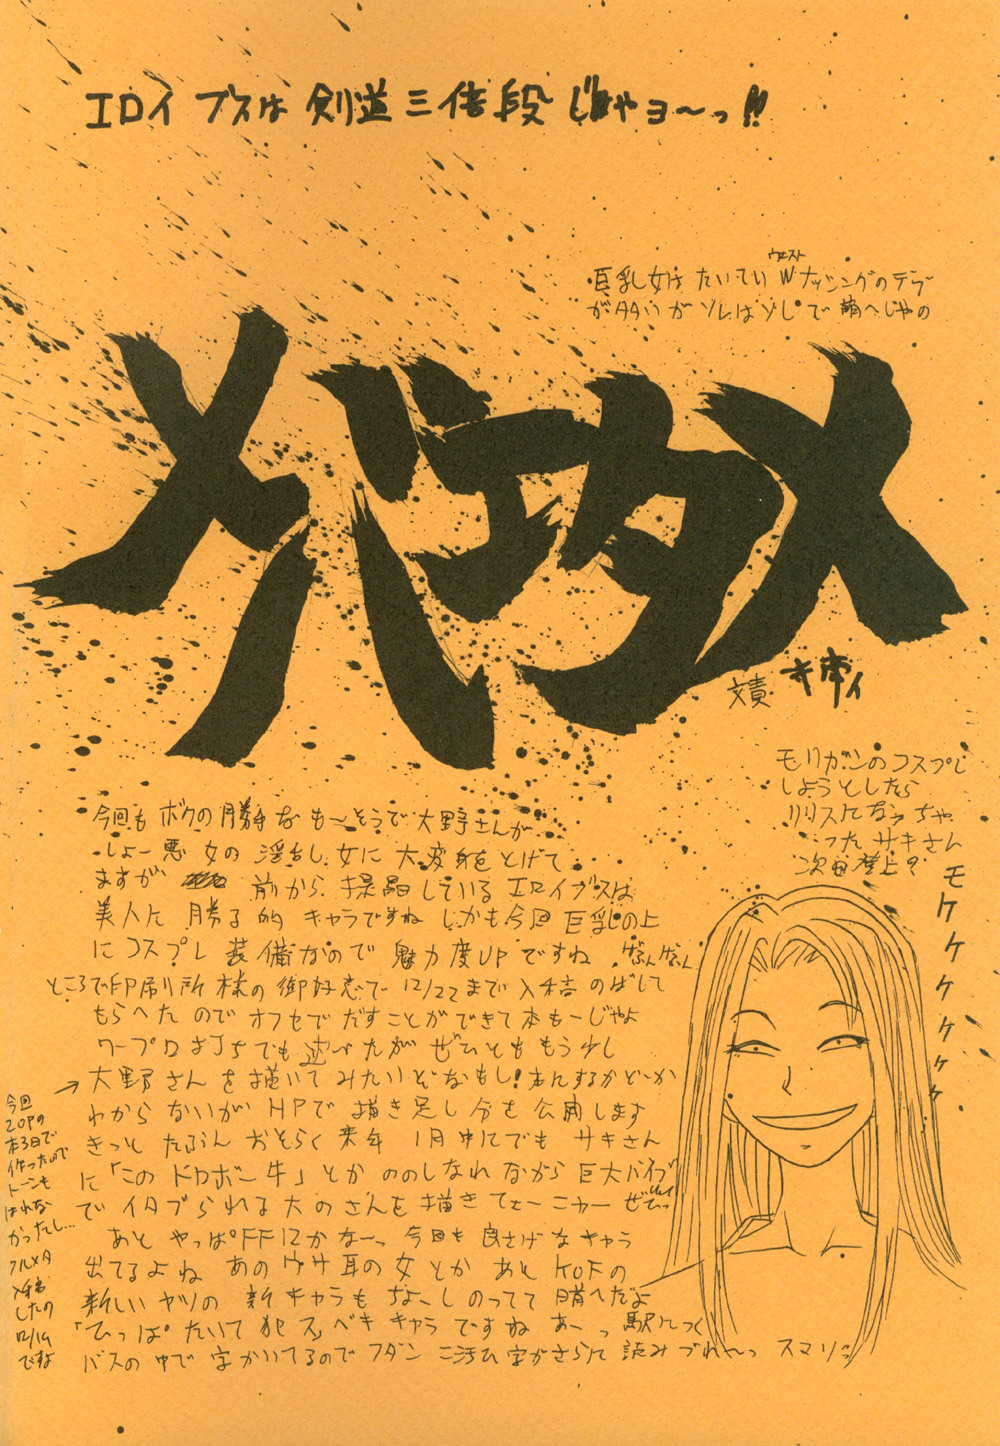 エロイ ブスは 剣道三倍段じゃヨ〜っ!!
ウエスト
巨乳女は たいてい Wナッシングのデブ
が多いが ソレはソレで 萌へじゃの
メバエタメ
文責
モリガンのコスプレ
しようとしたら
リリスになっちゃ
った サキさん
次回登上?
モケケケケケケ
今回も ボクの勝手な も〜そうで 大野さんが
しょー悪女の 淫乱女に 大変身をとげて
ますが 前から 提晶している エロイブスは
美人に 勝る的 キャラですね しかも今回 巨乳の上
にコスプレ 装備なので 魅力度UPですね
ところで印刷所様の御好意で 12/22まで入稿のばして
もらへたので オフセで だすことができて 本もーじゃよ
ワープロ打ちでも 述べたが ぜひとももう少し
→大野さんを描いてみたいぞなもし! 本にするかどーか
わからないが HPで 描き足し分を 公開します
きっと たぶん おそらく 来年 1月中にでも サキさん
に「このドロボー牛」とか ののしられながら 巨大バイブ
で イタブられる 大のさんを 描きてぇーニャー
あと やっぱ FF12かな〜っ 今回も 良さげなキャラ
出てるよね あのウサ耳の女とか あと KOFの
新しいヤツの 新キャラも
「ひっぱたいて 犯スべき キャラですね あーっ 駅につく
バスの中で 字かいてるので フダン 字がさらに 読みづれ〜っ スマソっ
今回
20Pの
本3日で
作ったので
トーンも
はれな
かったし…
したの
12/14
ですよ